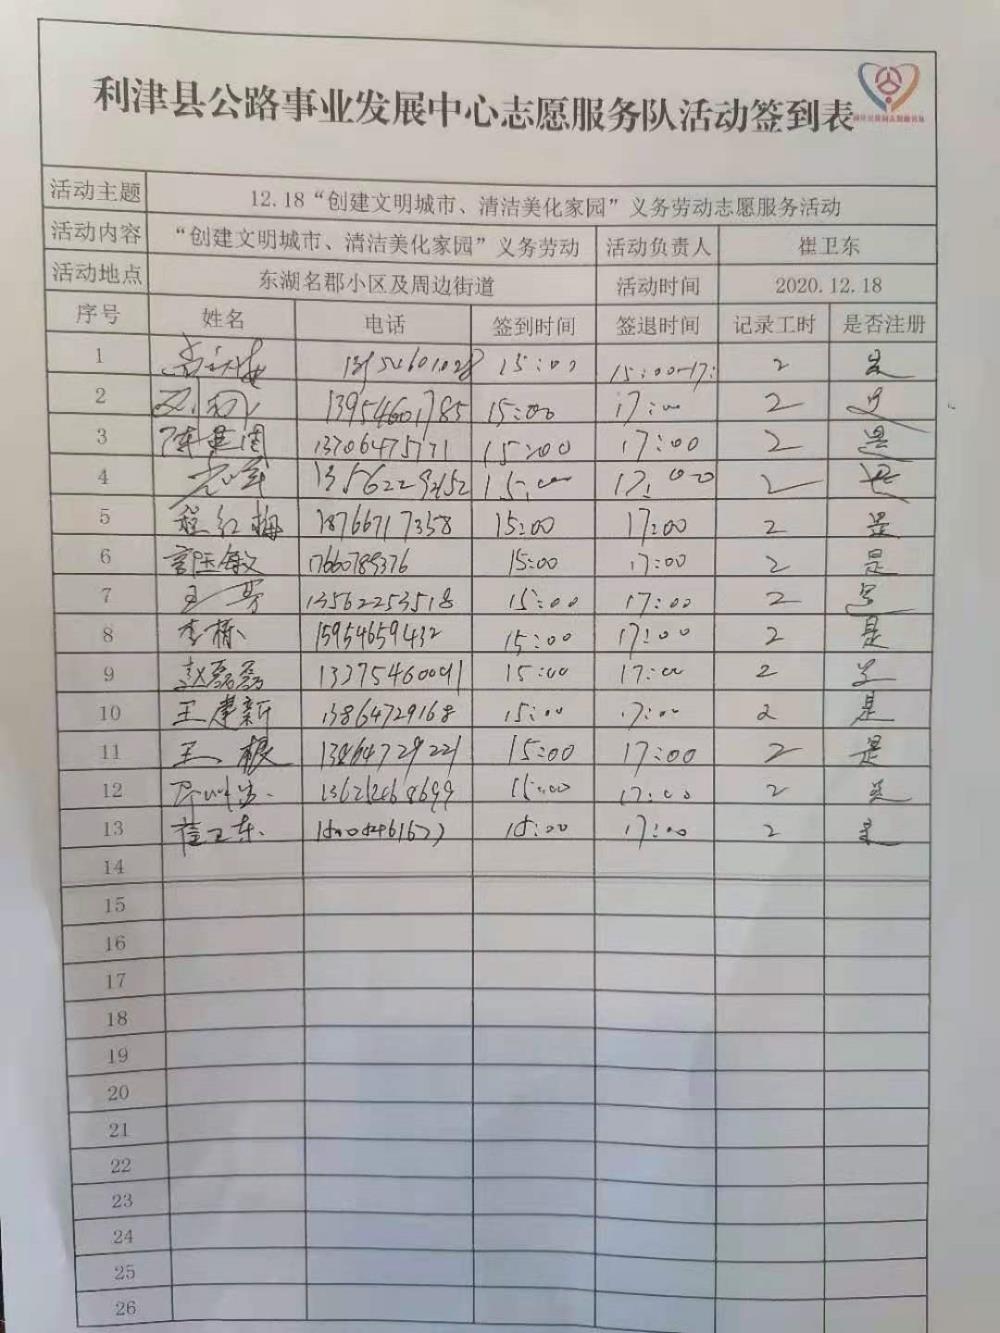 利津县公路事业发展中心志愿服务队活动签到表
活动主题 12.18“创建文明城市、清洁美化家园”义务劳动志愿服务活动
活动内容 “创建文明城市、清洁美化家园”义务劳动 活动负责人 崔卫东
活动地点 东湖名郡小区及周边街道 活动时间 2020.12.18
序号 姓名 电话 签到时间 签退时间 记录工时 是否注册
1 15:00 15:00-17: 2 是
2 13954601785 15:00 17:00 2 是
3 陈建国 13706475771 15:00 17:00 2 是
4 15:00 17:00 2 是
5 程红梅 18766717358 15:00 17:00 2 是
6 17660789376 15:00 17:00 2 是
7 王芳 13562253518 15:00 17:00 2 是
8 李楠 15954659432 15:00 17:00 2 是
9 赵磊磊 13275460091 15:00 17:00 2 是
10 王建新 13864729168 15:00 17:00 2 是
11 王根 13864729221 15:00 17:00 2 是
12 15:00 17:00 2 是
13 崔卫东 15:00 17:00 2 是
14
15
16
17
18
19
20
21
22
23
24
25
26